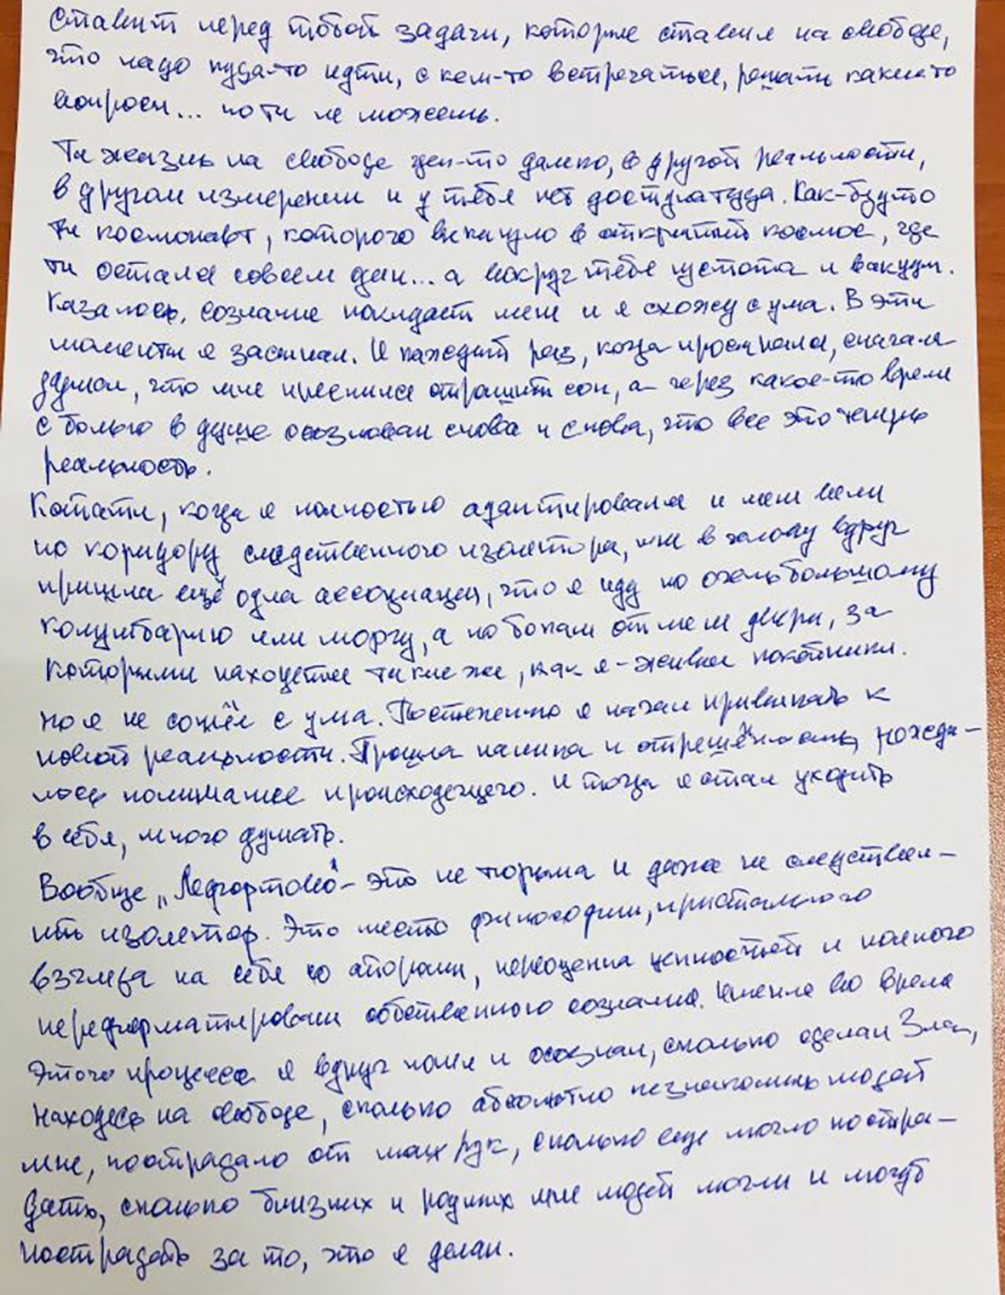 ставит перед тобой задачи, которые ставил на свободе,
что надо куда-то идти, с кем-то встречаться, решать какие то
вопросы... но ты не можешь.
Та жизнь на свободе где-то далеко, в другой реальности,
в другом измерении и у тебя нет доступа туда. Как-будто
ты космонавт, которого выкинуло в открытый космос, где
ты остался совсем один... а вокруг тебя пустота и вакуум.
Казалось, сознание покидает меня и я схожу с ума. В эти
моменты я засыпал. И каждый раз, когда просыпался, сначала
думал, что мне приснился страшный сон, а через какое-то время
с болью в душе осознавал снова и снова, что все это теперь
реальность.
Кстати, когда я полностью адаптировался и меня вели
по коридору следственного изолятора, мне в голову вдруг
пришла ещё одна ассоциация, что я иду по очень большому
колумбарию или моргу, а по бокам от меня двери, за
которыми находятся такие же, как я - живые покойники.
Но я не сошёл с ума. Постепенно я начал привыкать к
новой реальности. Прошла паника и отрешённость, появи-
лось понимание происходящего. И тогда я стал уходить
в себя, много думать.
Вообще „Лефортово" - это не тюрьма и даже не следствен-
ный изолятор. Это место философии, пристального
взгляда на себя со стороны, переоценки ценностей и полного
переформатирования собственного сознания. Именно во время
этого процесса я вдруг понял и осознал, сколько сделал Зла,
находясь на свободе, сколько абсолютно незнакомых людей
мне, пострадало от моих рук, сколько еще могло постра-
дать, сколько близких и родных мне людей могли и могут
пострадать за то, что я делал.